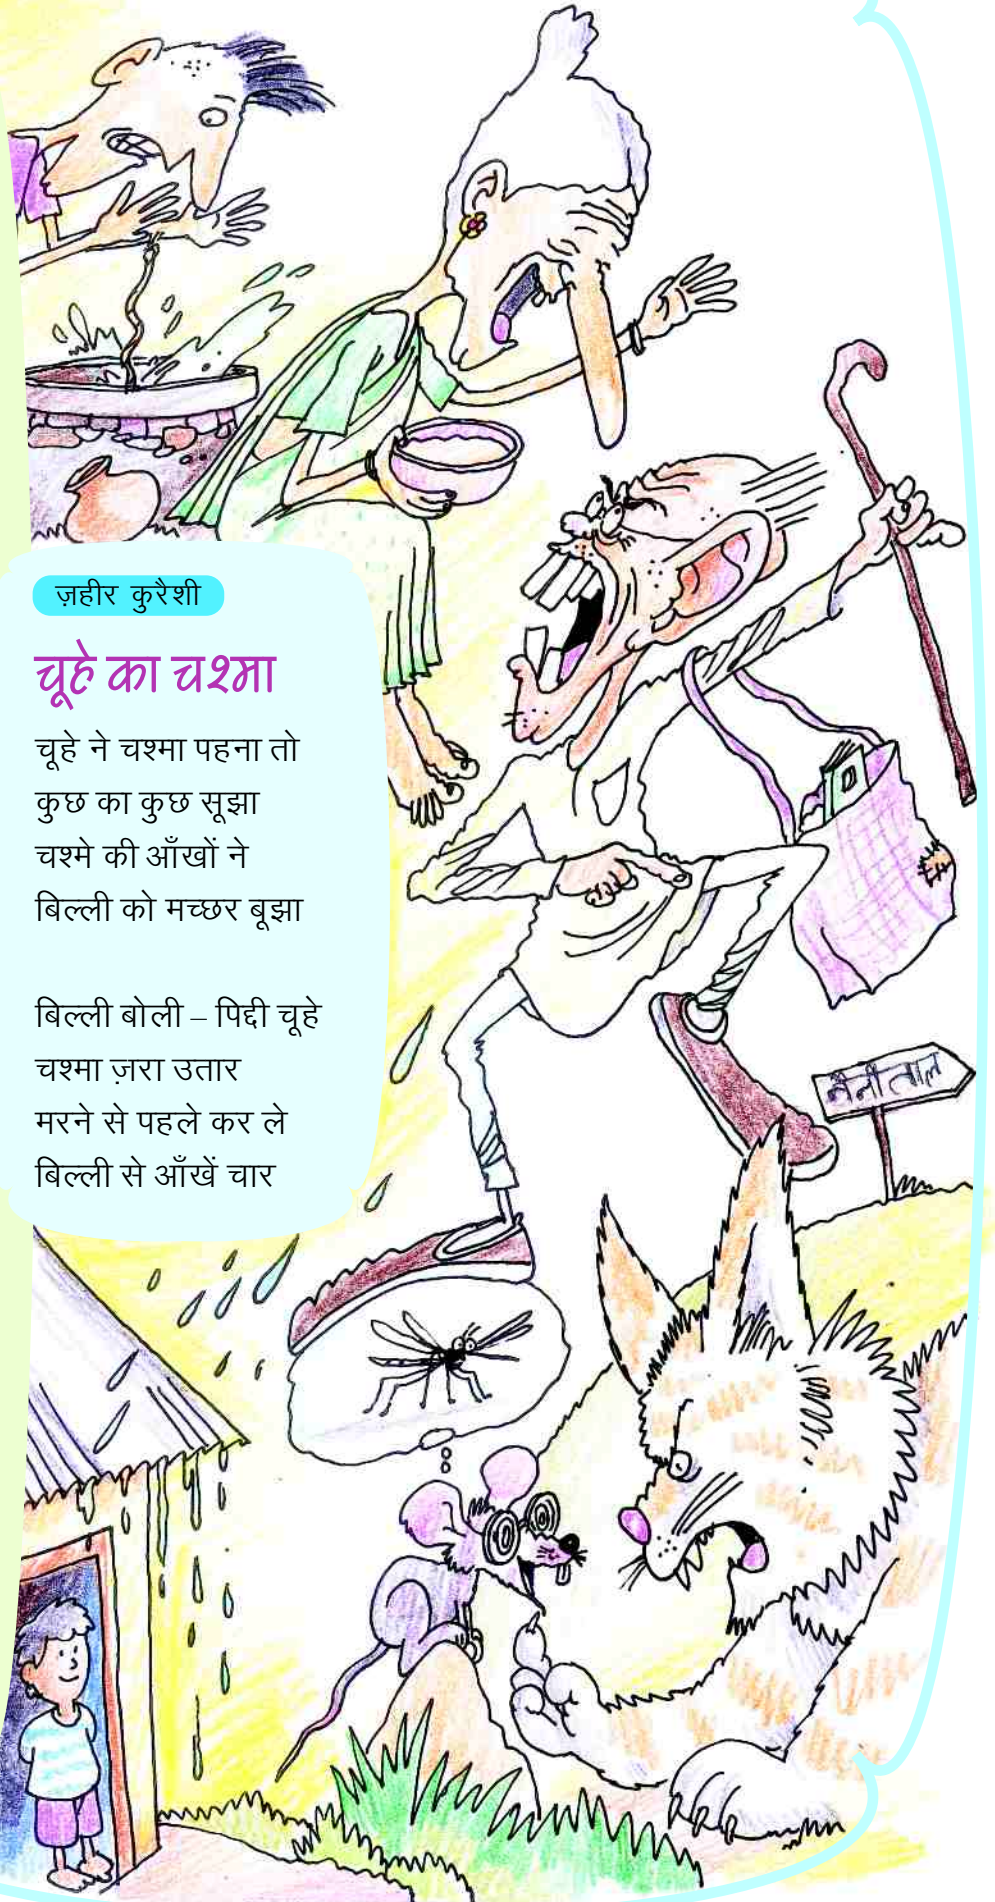 ज़हीर कुरैशी
चूहे का चश्मा
चूहे ने चश्मा पहना तो
कुछ का कुछ सूझा
चश्मे की आँखों ने
बिल्ली को मच्छर बूझा
बिल्ली बोली – पिद्दी चूहे
चश्मा ज़रा उतार
मरने से पहले कर ले
बिल्ली से आँखें चार
नैनीताल